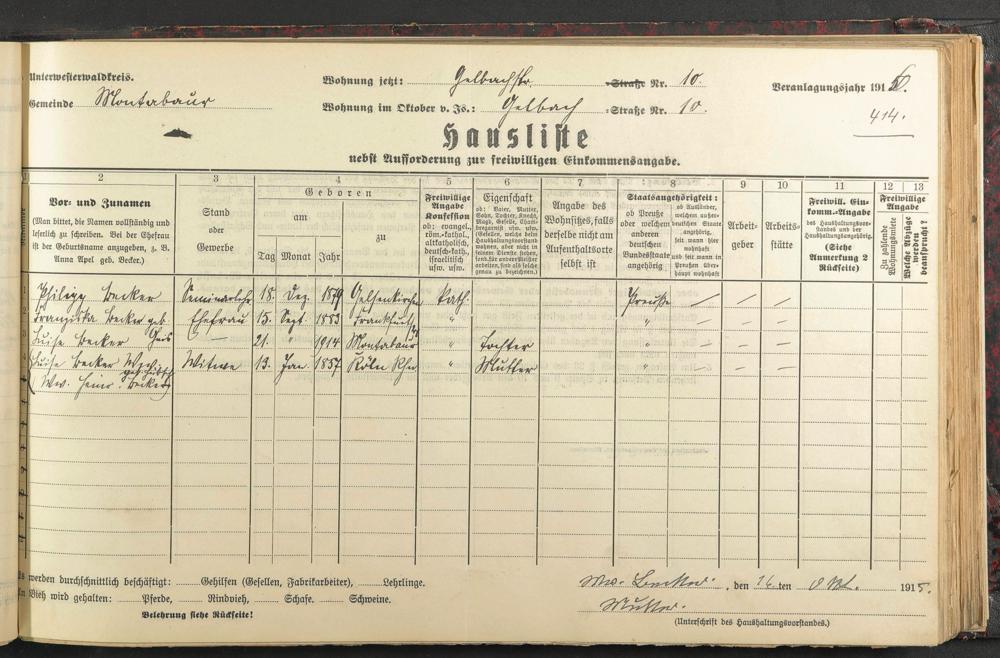 Unterwesterwaldkreis.
Gemeinde Montabaur
Wohnung jetzt: Gelbachstr. Straße Nr. 10.
Wohnung im Oktober v. Js.: Gelbach Straße Nr. 10.
Veranlagungsjahr 191
414.
Hausliste
nebst Aufforderung zur freiwilligen Einkommensangabe.
2 3 4 5 6 7 8 9 10 11 12 13
Vor- und Zunamen
(Man bittet, die Namen vollständig und
leserlich zu schreiben. Bei der Ehefrau
ist der Geburtsname anzugeben, z. B.
Anna Apel geb. Becker.)
Stand
oder
Gewerbe
Geboren
am
zu
Tag Monat Jahr
Freiwillige
Angabe
Konfession
ob: evangel.,
röm.-kathol.,
altkatholisch,
deutsch-kath.,
israelitisch
usw. usw.
Eigenschaft
ob: Vater, Mutter,
Sohn, Tochter, Knecht,
Magd, Geselle,
Angabe des
Wohnsitzes, falls
derselbe nicht am
Aufenthaltsorte
selbst ist
Staatsangehörigkeit:
ob Preuße
oder welchem
anderen
deutschen
Bundesstaate
angehörig
ob Ausländer,
welchem außer-
deutschen Staate
angehörig,
seit wann hier
wohnhaft
und seit wann in
Preußen über-
haupt wohnhaft
Arbeit-
geber
Arbeits-
stätte
Freiwill. Ein-
komm.-Angabe
des Haushaltungsvor-
standes und der
Haushaltungsangehörig.
(Siehe
Anmerkung 2
Rückseite)
Freiwillige
Angabe
Zu zahlende
Wohnungsmiete
Welche Abzüge
werden
beansprucht?
Philipp Becker Seminarlehr 18. Dez. 1879 Gelsenkirchen kath. Preuße — — —
Franziska Becker geb. Ehefrau 15. Sept. 1883 Frankfurt " " — — —
Luise Becker — 21. " 1914 Montabaur " Tochter " — — —
Luise Becker Witwe 13. Jan. 1857 Köln Rhn " Mutter " — — —
(Ww. Heinr. Becker)
Es werden durchschnittlich beschäftigt: Gehilfen (Gesellen, Fabrikarbeiter), Lehrlinge.
An Vieh wird gehalten: Pferde, Rindvieh, Schafe. Schweine.
Belehrung siehe Rückseite!
Ww. Becker, den ten Okt. 1915.
Mutter.
(Unterschrift des Haushaltungsvorstandes.)